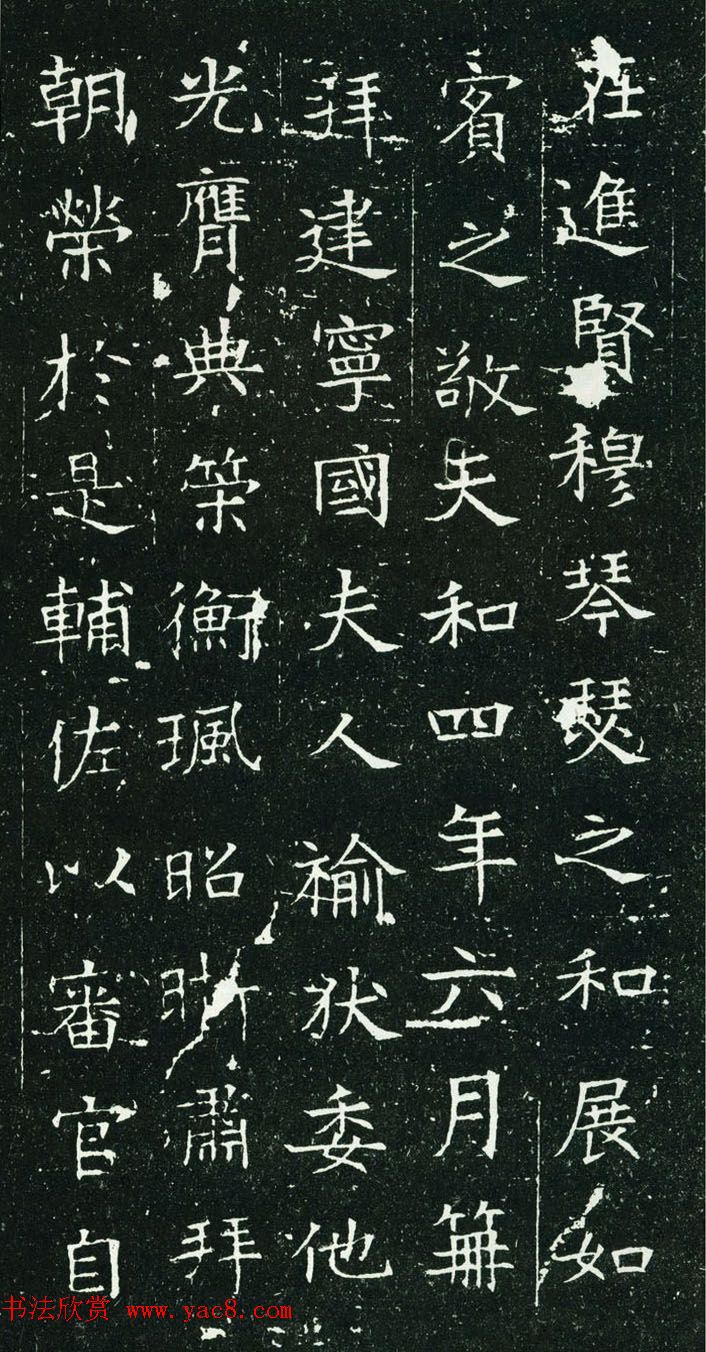 在進賢穆琴瑟之和展如
賓之敬大和四年六月冊
拜建寧國夫人褕狄委他
光膺典筞衡珮昭晣肅拜
朝榮於是輔佐以審官自
书法欣赏 www.yac8.com